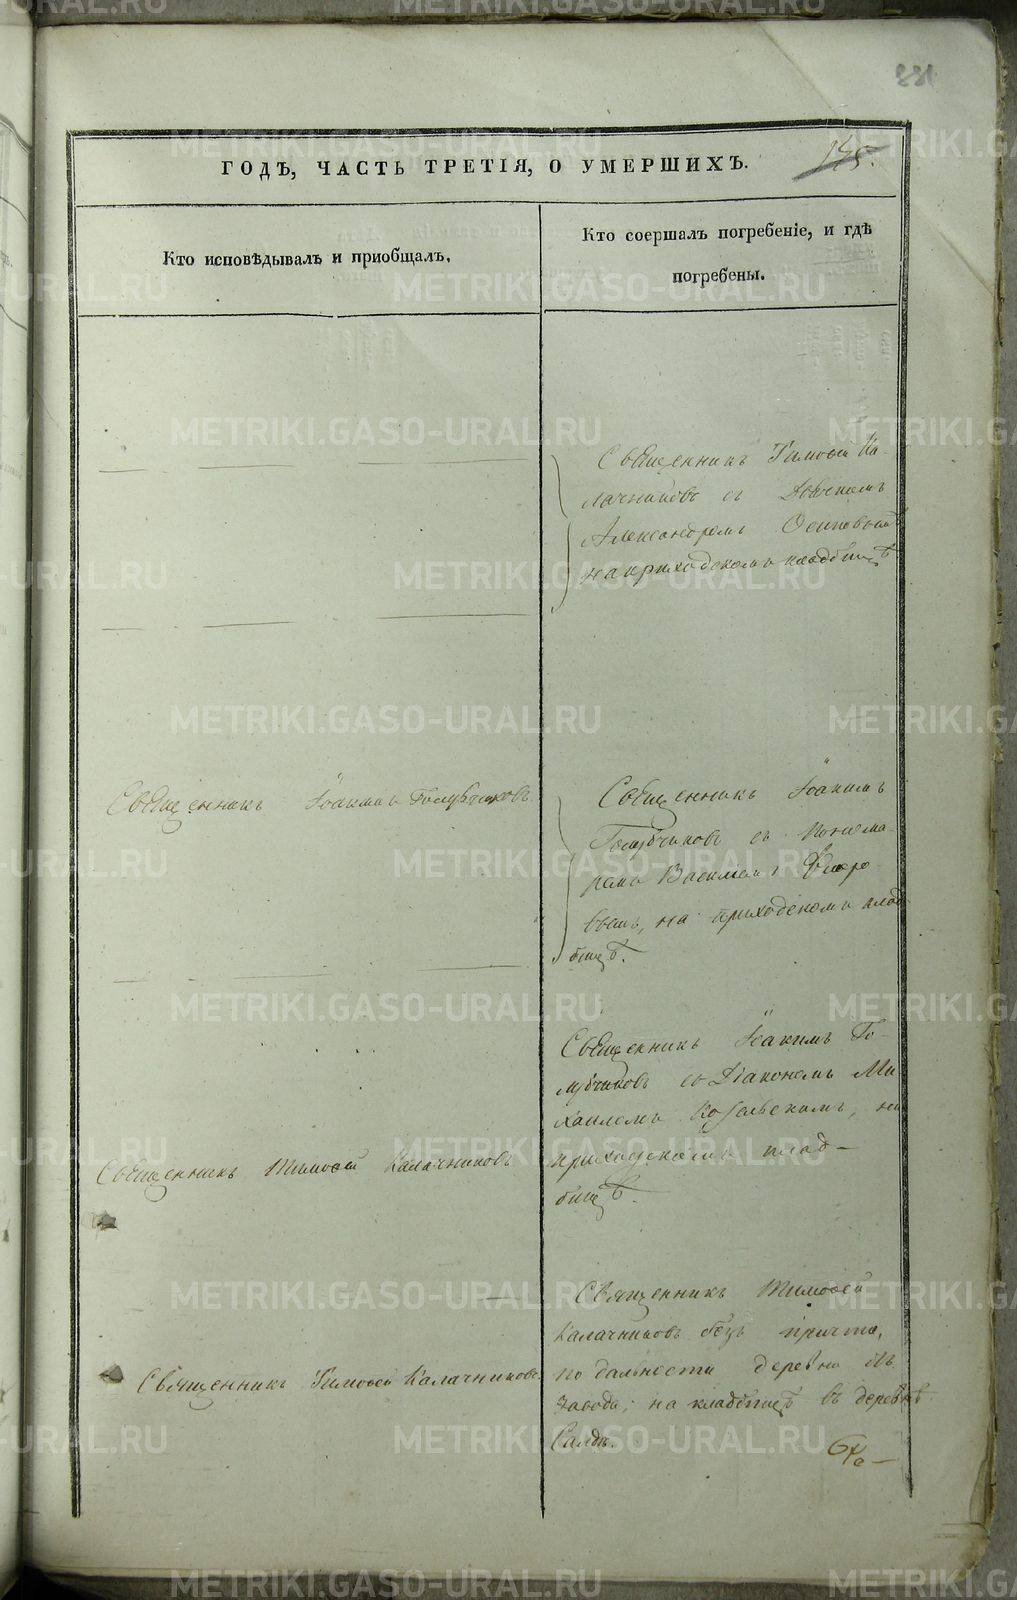 331
145.
ГОДЪ, ЧАСТЬ ТРЕТІЯ, О УМЕРШИХЪ.
Кто исповѣдывалъ и приобщалъ.
Кто соершалъ погребеніе, и гдѣ
погребены.
Священникъ Тимофей Ка-
лачниковъ съ Дьячкомъ
Александромъ Осиповымъ
на приходскомъ кладбищѣ
Священникъ Іоакимъ Голубчиковъ
Священникъ Іоакимъ
Голубчиковъ съ Понома-
ремъ Василіемъ
вымъ, на приходскомъ клад
бищѣ.
Священникъ Іоакимъ Го-
лубчиковъ съ Діакономъ Ми
хаиломъ Козельскимъ, на
приходскомъ клад-
бищѣ.
Священникъ Тимофей Калачниковъ
Священникъ Тимофей
Калачниковъ безъ причта,
по дальности деревни отъ
завода; на кладбищѣ въ деревнѣ
Салдѣ.
Священникъ Тимофей Калачниковъ
METRIKI.GASO-URAL.RU